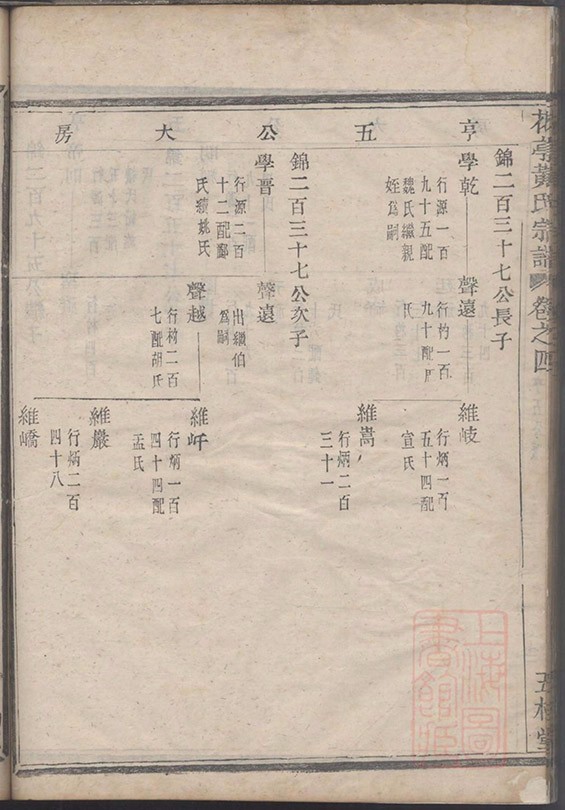 黃氏宗譜 卷之四
五桂堂
亨五公大房
錦二百三十七公長子
學乾
行源一百
九十五配
魏氏繼親
姪爲嗣
聲遠
行杓一百
九十配
氏
維岐
行炳一百
五十四配
宣氏
維嵩
行炳二百
三十一
錦二百三十七公次子
學晋
行源二百
十二配鄞
氏續姚氏
聲遠
出繼伯
爲嗣
聲越
行杓二百
七配胡氏
維屽
行炳一百
四十四配
孟氏
維巖
行炳二百
四十八
維嶠
上海圖書館藏